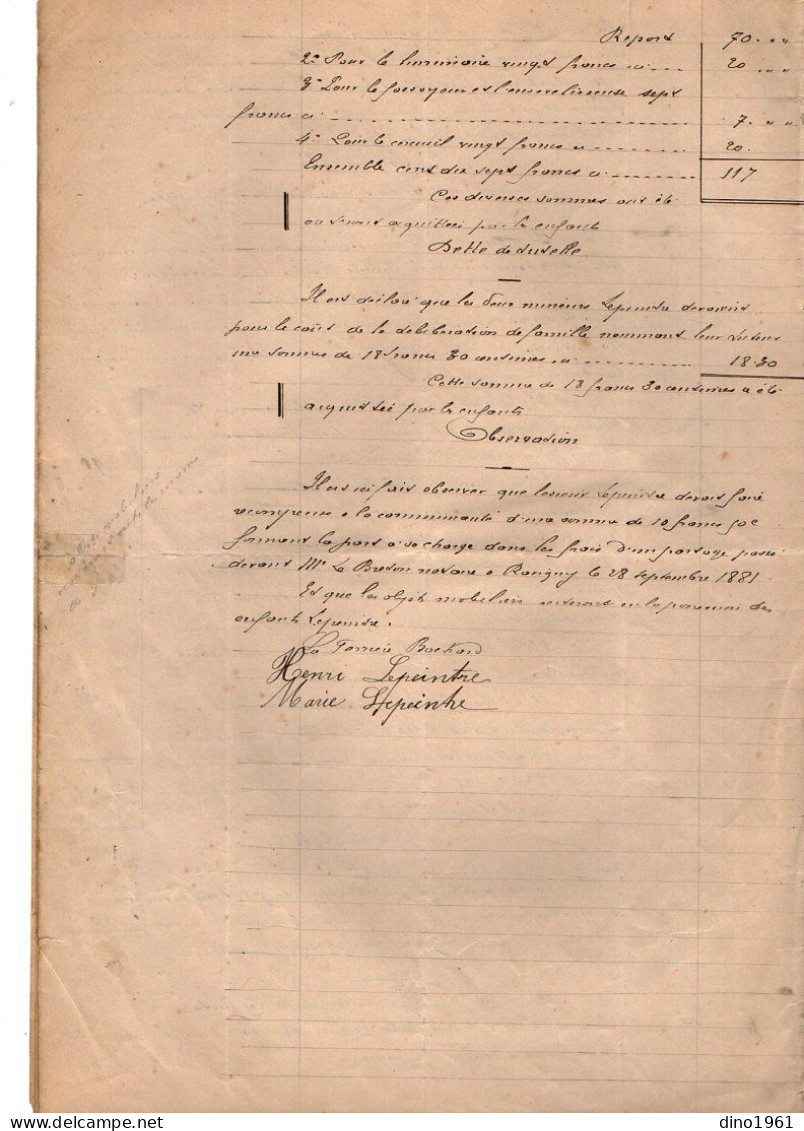 Report 70 " "
2° Pour le luminaire vingt francs ci 20 " "
3° Pour le fossoyeur et l'ensevelisseuse sept
francs ci 7 " "
4° Pour le cercueil vingt francs ci 20
Ensemble cent dix sept francs ci 117
Ces diverses sommes ont été
ou seront acquittées par les enfants
Dette de tutelle
Il est déclaré que les deux mineurs Lepeintre devaient
pour le coût de la délibération de famille nommant leur tuteur
une somme de 18 francs 30 centimes ci 18.30
Cette somme de 18 francs 30 centimes a été
acquittée par les enfants
Observation
Il est ici fait observer que le sieur Lepeintre devait faire
récompense à la communauté d'une somme de 10 francs 50c
formant la part à sa charge dans les frais d'un partage passé
devant Me Le Breton notaire à le 28 septembre 1881
Et que les objets mobiliers resteront en la possession des
enfants Lepeintre.
La Bochard
Henri Lepeintre
Marie Lepeintre
dino1961